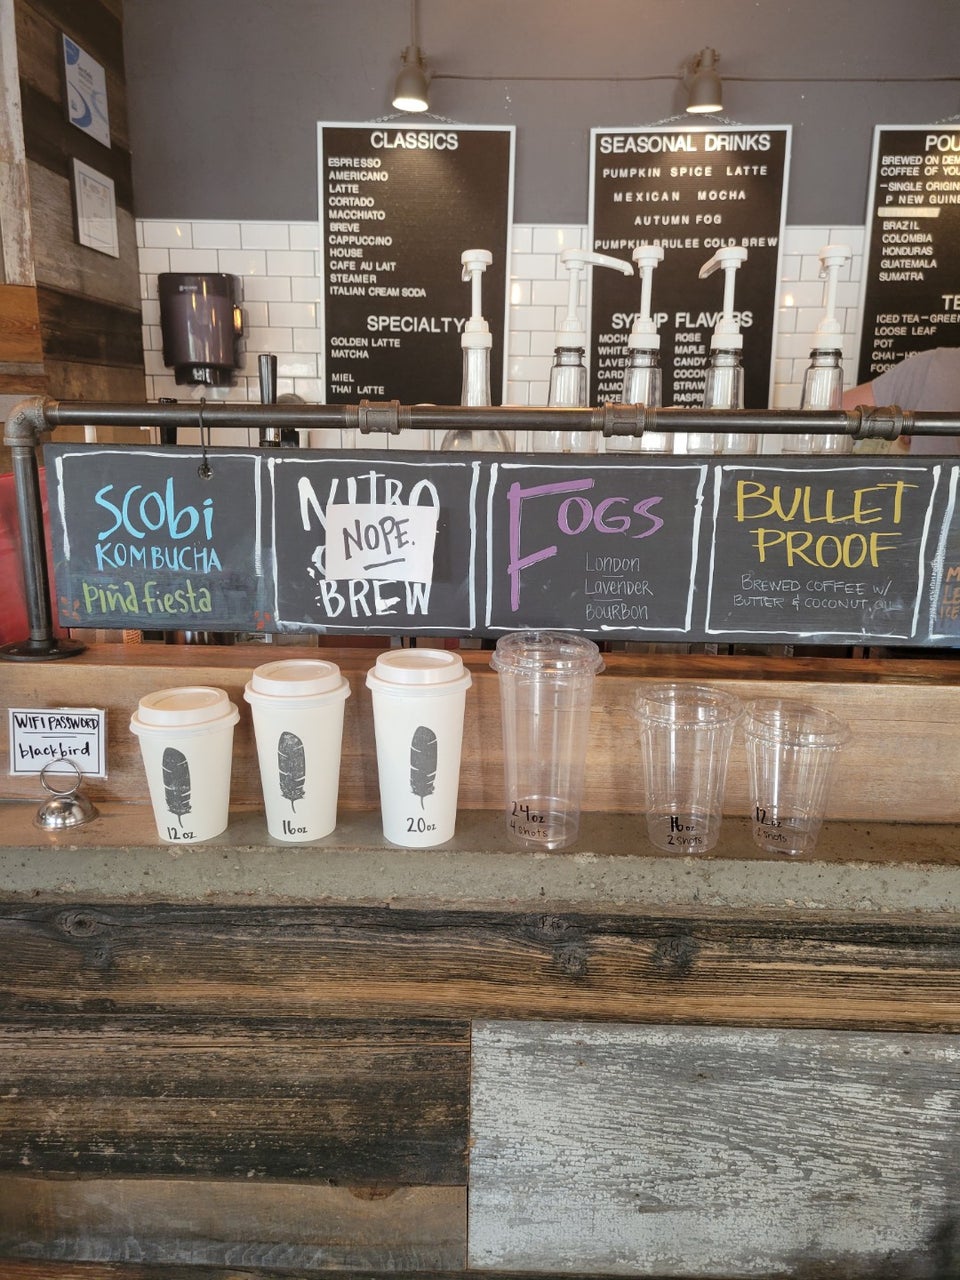 CLASSICS
ESPRESSO
AMERICANO
LATTE
CORTADO
MACCHIATO
BREVE
CAPPUCCINO
HOUSE
CAFE AU LAIT
STEAMER
ITALIAN CREAM SODA
SPECIALTY
GOLDEN LATTE
MATCHA
MIEL
THAI LATTE
SEASONAL DRINKS
PUMPKIN SPICE LATTE
MEXICAN MOCHA
AUTUMN FOG
PUMPKIN BRULEE COLD BREW
SYRUP FLAVORS
MOCH
WHITE
LAVEN
CARD
ALMO
HAZE
ROSE
MAPLE
CANDY
COCON
STRAW
RASPB
POU
BREWED ON DEM
COFFEE OF YOU
-SINGLE ORIGIN
P NEW GUINE
BRAZIL
COLOMBIA
HONDURAS
GUATEMALA
SUMATRA
TE
ICED TEA-GREEN
LOOSE LEAF
POT
CHAI-HO
FOGS
SCOBI
KOMBUCHA
Piña fiesta
NITRO
NOPE.
BREW
FOGS
London
Lavender
Bourbon
BULLET
PROOF
BREWED COFFEE W/
BUTTER & COCONUT OIL
WIFI PASSWORD
blackbird
12 oz
16 oz
20 oz
24 oz
4 shots
16 oz
2 shots
12 oz
2 shots